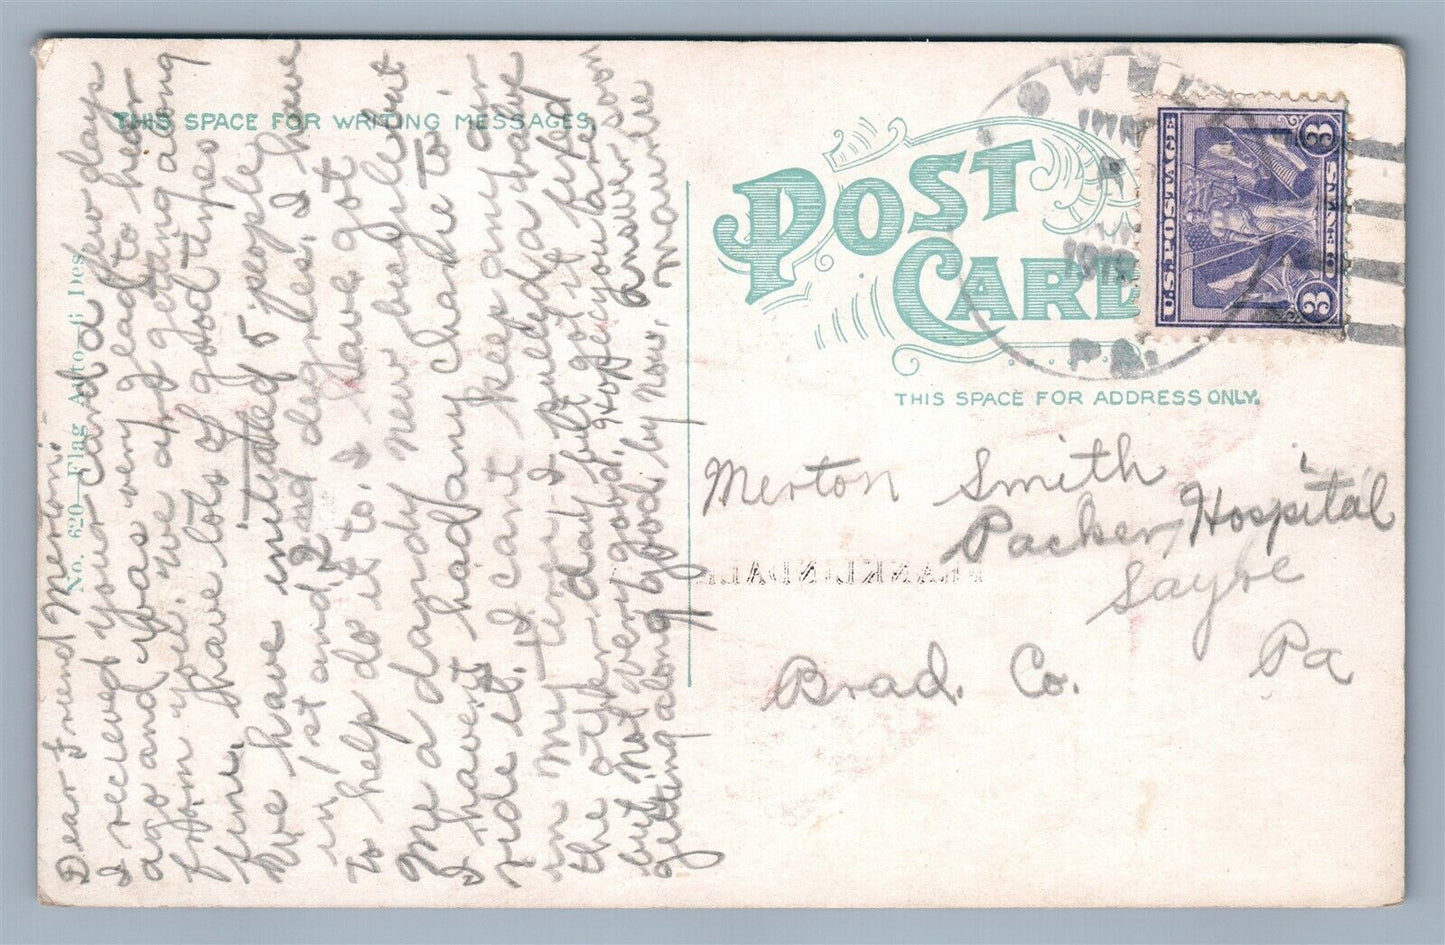 THIS SPACE FOR WRITING MESSAGES.
No. 620—Flag Auto—6 Des.
Dear Friend Merton:
I received your card a few days
ago and was very glad to hear
from you. We are getting along
fine, have lots of good times
We have initiated 5 people
in 1st and 2nd degrees. I have
to help do it to. I have got
me a dandy new bugy but
I havent had any chance to
ride it. I cant keep any air
on my tire I pulled a valve
the other day but got it fixed
but not very good. Hope you are
getting along good, by now, Answer soon
Maurice
POST
CARD
PA.
1918
U.S. POSTAGE
3 CENTS 3
THIS SPACE FOR ADDRESS ONLY.
Merton Smith
Packer Hospital
Sayre
Brad. Co. Pa